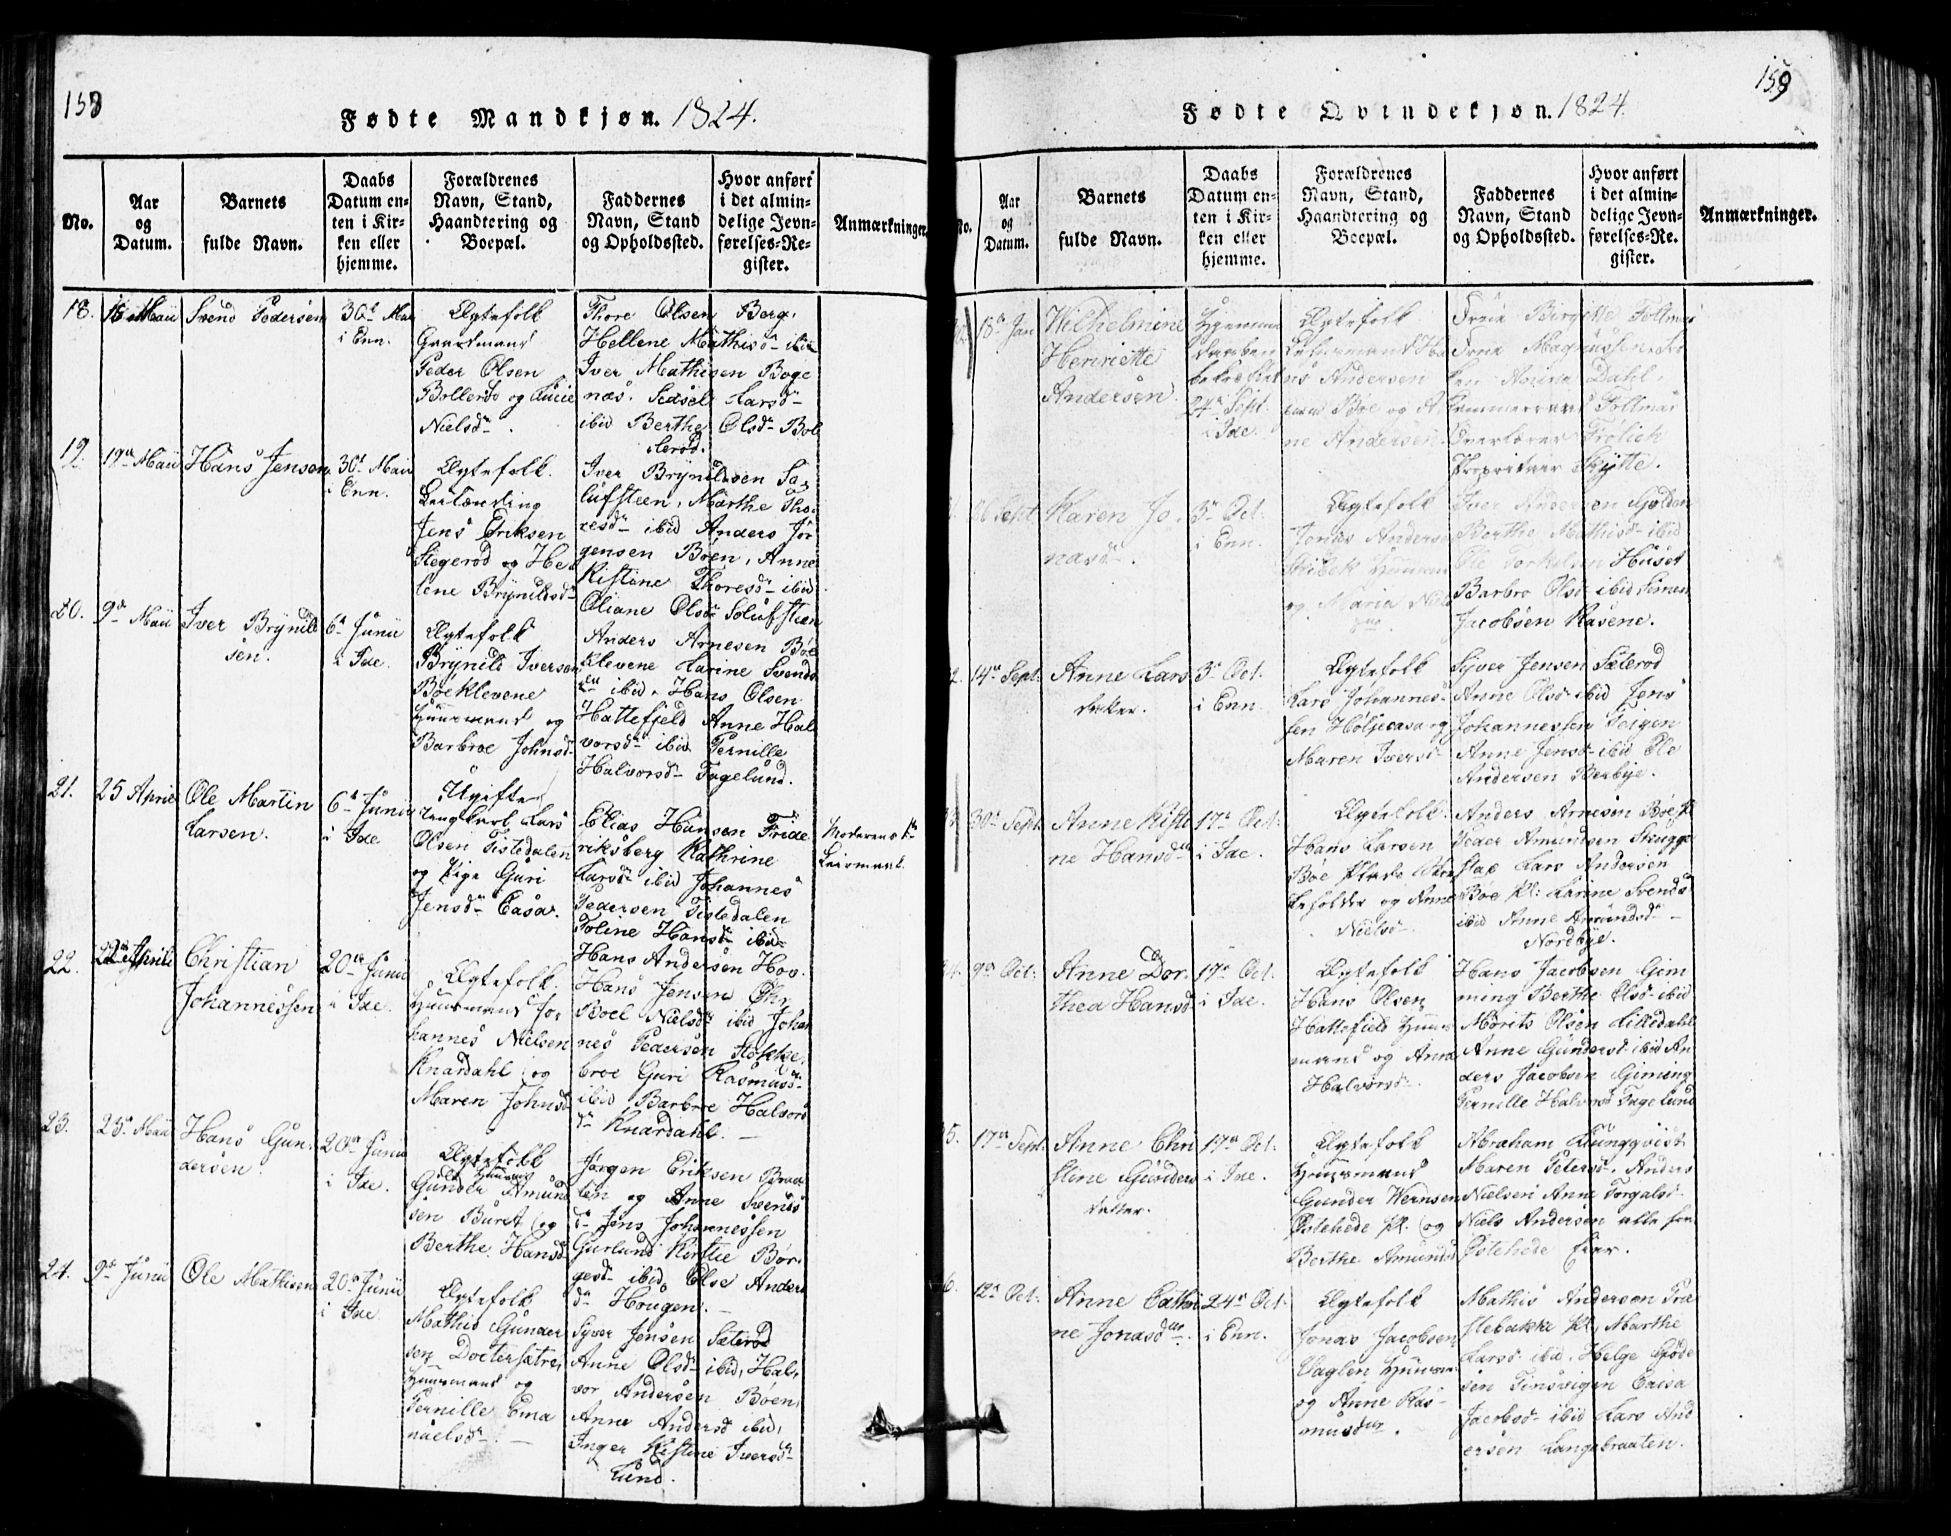 158
Fødte Mandkjøn. 1824.
No.
Aar og Datum.
Barnets fulde Navn.
Daabs Datum enten i Kirken eller hjemme.
Forældrenes Navn, Stand, Haandtering og Boepæl.
Faddernes Navn, Stand og Opholdssted.
Hvor anført i det almindelige Jevnførelses-Register.
Anmærkninger.
18.
16 Maii
Svend Pedersen
30t Maii
i Enn.
Ægtefolk
Gaardmand
Peder Olsen
Bollerød og Lucie
Nielsd.
Thore Olsen Berg,
Hellene Mathisd ibid
Iver Mathisen Boge
næs. Sedsel Larsd
ibid Berthe Olsd Bol
lerød.
19.
19de Maii
Hans Jensen
30t Maii
i Enn.
Ægtefolk.
Jens Eriksen
Stegerød og He
lene Brynildsd
Iver Brynildsen So
lufsteen, Marthe Tho
resd ibid Anders Jør
gensen Bøen, Anne
Kistine Thoresd ibid
Oliane Olsd Solufsteen
20.
9de Maii
Iver Brynild
sen.
6t Junii
i Ide.
Ægtefolk
Brynild Iversen
Böeklevene
Huusmand og
Barbroe Johnsd
Anders Arnesen Böe
klevene Karine Svends
ibid. Hans Olsen
Hattefjeld Anne Hal
vorsd ibid Pernille
Halvorsd Fagelund.
21.
25 Aprilii
Ole Martin
Larsen.
6t Junii
i Ide
Ugifte
Ungkarl Lars
Olsen Tistedalen
og Pige Guri
Jensd Casa.
Elias Hansen Fride
riksberg Kathrine
Larsd ibid Johannes
Pedersen Tistedalen
Toline Hansd ibid
Hans Andersen Hov.
Moderens 1te
Leiermaal.
22.
22de Aprilii
Christian
Johannessen
20de Junii
i Ide.
Ægtefolk.
Huusmand Jo
hannes Nielsen
Knardahl og
Maren Johnsd
Hans Jensen
Boel Nielsd ibid Johan
nes Pedersen Stokke
broe Guri Rasmusd
ibid Barbroe Halvors
d Knardahl.
23.
25de Maii
Hans Gun
dersen.
20de Junii
i Ide.
Ægtefolk
Huusmand
Gunder Amund
sen Buret og
Berthe Hansd
Jørgen Eriksen Braa
ten og Anne Svends
d Jens Johannessen
Gurlund Kirstie Bør
gesd ibid, Else Anders
d Hougen.
24.
9de Junii
Ole Mathisen
20de Junii
i Ide.
Ægtefolk
Mathis Gunder
sen Doctersætre,
Huusmand og
Pernille Ema
nuelsd.
Syver Jensen Sæterød
Anne Olsd ibid, Hal
vor Andersen Bøen,
Anne Andersd ibid,
Inger Kistine Iversd
Lund.
159
Fødte Qvindekjøn. 1824.
No.
Aar og Datum.
Barnets fulde Navn.
Daabs Datum enten i Kirken eller hjemme.
Forældrenes Navn, Stand, Haandtering og Boepæl.
Faddernes Navn, Stand og Opholdssted.
Hvor anført i det almindelige Jevnførelses-Re. gister.
Anmærkninger.
18de Jan
Wilhelmine
Henriette
Andersen.
Hjemme
24de Sept.
i Ide.
Ægtefolk
Andersen
Böe og
ne Andersen.
Frue Birgitte
Frue Magnussen
Dahl.
Overlærer Frølich
Proprietair Skytte.
26 Sept
Karen Jo
nasd.
3de Oct.
i Enn.
Ægtefolk
Jonas Andersen
og Maria Niels
Iver Andersen
Berthe Mathisd ibid
Ole Torkelsen Huset
Barbro Olsd ibid Simen
Jacobsen Kasene.
14de Sept.
Anne Lars
datter.
3de Oct.
i Enn.
Ægtefolk
Lars Johannes
sen Høljecasa og
Maren Iversd
Syver Jensen Sæterød
Anne Olsd ibid Jens
Johannessen Teigen
Anne Jensd ibid Ole
Andersen Berbye.
30de Sept.
Anne Kisti
ne Hansd
17de Oct.
i Ide.
Ægtefolk.
Hans Larsen
Böe
og Anne
Nielsd
Anders Arnesen Böe
Peder Amundsen Skugge
Lars Andersen
Böe Pl: Karine Svendsd
ibid Anne Amundsd
Nordbye.
9de Oct:
Anne Dor
thea Hansd
17de Oct.
i Ide.
Ægtefolk
Hans Olsen
Hattefield Huus
mand og Anne
Halvorsd.
Hans Jacobsen Gim
ming Berthe Olsd ibid
Morits Olsen Lilledahl
Anne Gundersd ibid An
ders Jacobsen Gimming
Pernille Halvorsd Fagelund
5.
17de Sept
Anne Chri
stine Gunders
datter.
17de Oct.
i Ide.
Ægtefolk
Huusmand
Gunder Wernsen
Østehede Pl. og
Berthe Amundsd
Abraham Liungqvist
Maren Petersd. Anders
Nielsen Anne Torgalsd
Niels Andersen alle fra
Østehede Eier.
6.
12te Oct.
Anne Cathri
ne Jonasd.
24de Oct.
i Enn.
Ægtefolk
Jonas Jacobsen
Vaglen Huusm
og Anne Ras
musd.
Mathis Andersen Træ
slebakke Pl. Marthe
Larsd ibid. Helge Gude
sen Tinsvigen Caisa
Jacobsd ibid Lars And
ersen Langebraaten.